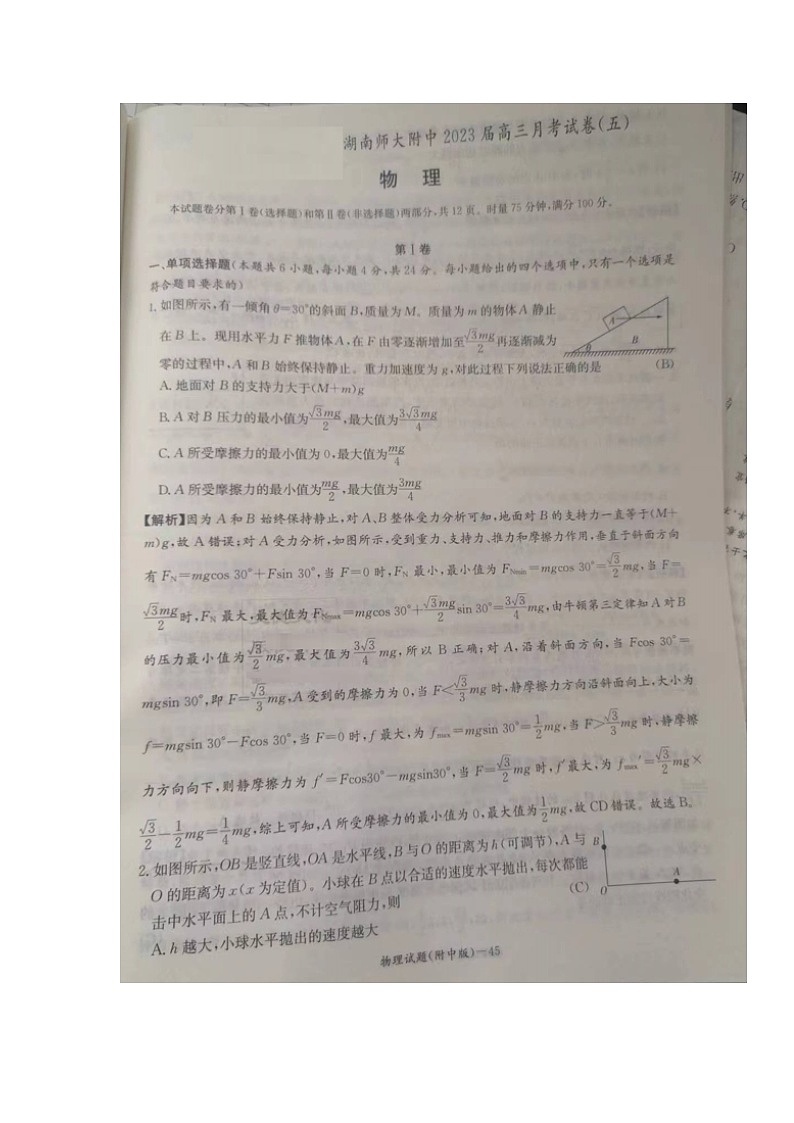 湖南师大附中2023届高三月考试卷(五)
物 理
本试题卷分第Ⅰ卷(选择题)和第Ⅱ卷(非选择题)两部分,共12页。时量75分钟,满分100分。
第Ⅰ卷
一、单项选择题(本题共6小题,每小题4分,共24分。每小题给出的四个选项中,只有一个选项是
符合题目要求的)
1.如图所示,有一倾角θ=30°的斜面B,质量为M。质量为m的物体A静止
在B上。现用水平力F推物体A,在F由零逐渐增加至√3mg/2再逐渐减为
零的过程中,A和B始终保持静止。重力加速度为g,对此过程下列说法正确的是 (B)
A θ B
A.地面对B的支持力大于(M+m)g
B.A对B压力的最小值为√3mg/2,最大值为3√3mg/4
C.A所受摩擦力的最小值为0,最大值为mg/4
D.A所受摩擦力的最小值为mg/2,最大值为3mg/4
【解析】因为A和B始终保持静止,对A、B整体受力分析可知,地面对B的支持力一直等于(M+
m)g,故A错误;对A受力分析,如图所示,受到重力、支持力、推力和摩擦力作用,垂直于斜面方向
有FN=mgcos 30°+Fsin 30°,当F=0时,FN最小,最小值为FNmin=mgcos 30°=√3/2mg,当F=
√3mg/2时,FN最大,最大值为FNmax=mgcos 30°+√3mg/2sin 30°=3√3/4mg,由牛顿第三定律知A对B
的压力最小值为√3/2mg,最大值为3√3/4mg,所以B正确;对A,沿着斜面方向,当Fcos 30°=
mgsin 30°,即F=√3/3mg,A受到的摩擦力为0,当F<√3/3mg时,静摩擦力方向沿斜面向上,大小为
f=mgsin 30°-Fcos 30°,当F=0时,f最大,为fmax=mgsin 30°=1/2mg,当F>√3/3mg时,静摩擦
力方向向下,则静摩擦力为f′=Fcos30°-mgsin30°,当F=√3/2mg时,f′最大,为fmax′=√3/2mg×
√3/2-1/2mg=1/4mg,综上可知,A所受摩擦力的最小值为0,最大值为1/2mg,故CD错误。故选B。
2.如图所示,OB是竖直线,OA是水平线,B与O的距离为h(可调节),A与
O的距离为x(x为定值)。小球在B点以合适的速度水平抛出,每次都能
击中水平面上的A点,不计空气阻力,则 (C)
B O A
A.h越大,小球水平抛出的速度越大
物理试题(附中版)—45